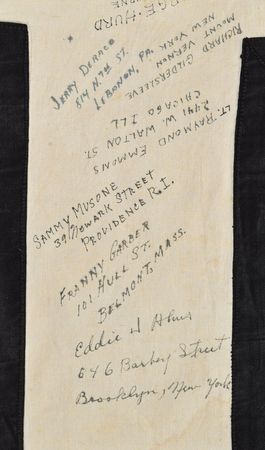 RGE HURD
JERRY DERACO
814 N. 7TH ST.
LEBANON, PA.
RICHARD GILDERSLEEVE
MOUNT VERNON
NEW YORK
LT. RAYMOND EMMONS
2441 W. WALTON ST.
CHICAGO ILL
SAMMY MUSONE
39 Newark STREET
PROVIDENCE R.I.
FRANNY GARBER
101 HULL ST.
BELMONT, MASS.
Eddie J
646 Barbey Street
Brooklyn, New York